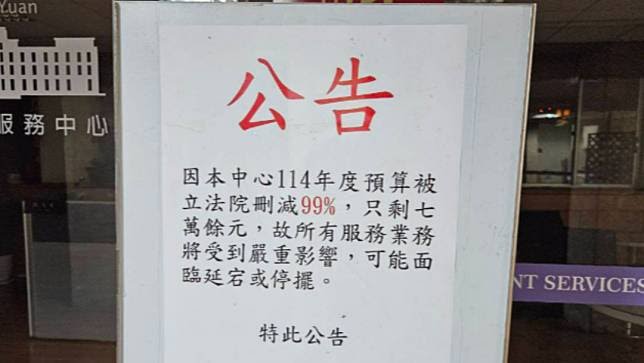 Yuan
服務中心
公告
因本中心114年度預算被
立法院刪減99%，只剩七
萬餘元，故所有服務業務
將受到嚴重影響，可能面
臨延宕或停擺。
特此公告
NT SERVICES